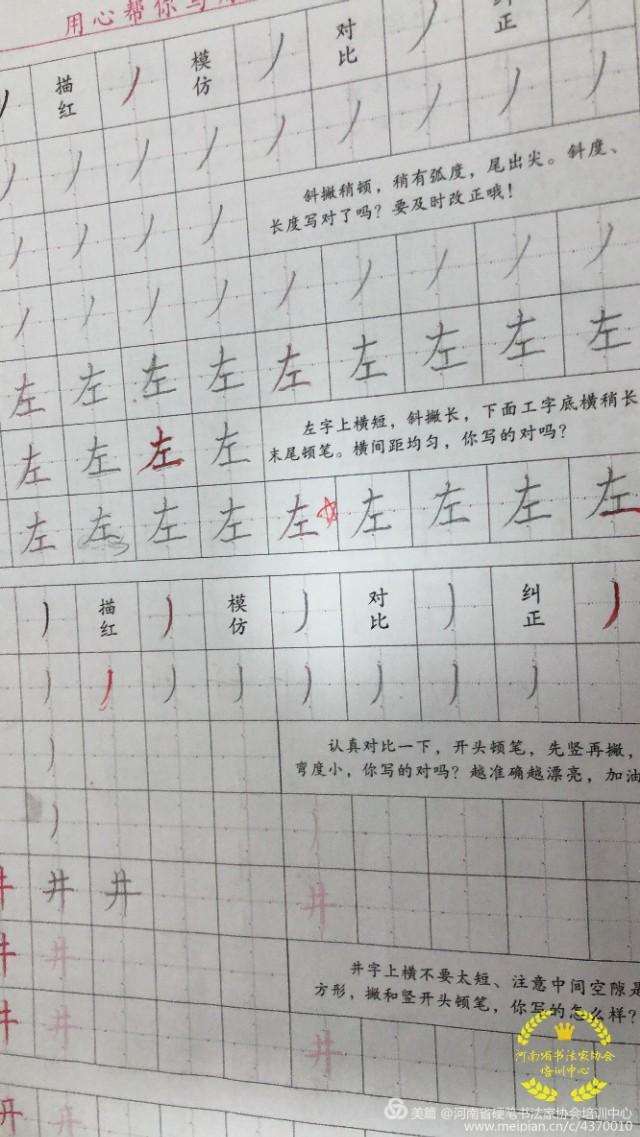 用心帮你
丿 描红 丿 模仿 丿 对比 丿 纠正 丿
丿 丿 丿 丿 丿 丿 丿 丿 丿
丿 丿 丿 丿
斜撇稍顿，稍有弧度，尾出尖。斜度、
长度写对了吗？要及时改正哦！
丿 丿 丿 丿 丿 丿 丿 丿 丿
左 左 左 左 左 左 左 左 左
左 左 左 左
左字上横短，斜撇长，下面工字底横稍长
末尾顿笔。横间距均匀，你写的对吗？
左 左 左 左 左 左 左 左 左
丿 描红 丿 模仿 丿 对比 丿 纠正 丿
丿 丿 丿 丿 丿 丿 丿 丿
丿
认真对比一下，开头顿笔，先竖再撇，
弯度小，你写的对吗？越准确越漂亮，加油
丿 丿
井 井 井 井
井 井
井字上横不要太短、注意中间空隙是
方形，撇和竖开头顿笔，你写的怎么样？
井 井 井
开 开
河南省书法家协会
培训中心
美篇 @河南省硬笔书法家协会培训中心
www.meipian.cn/c/4370010